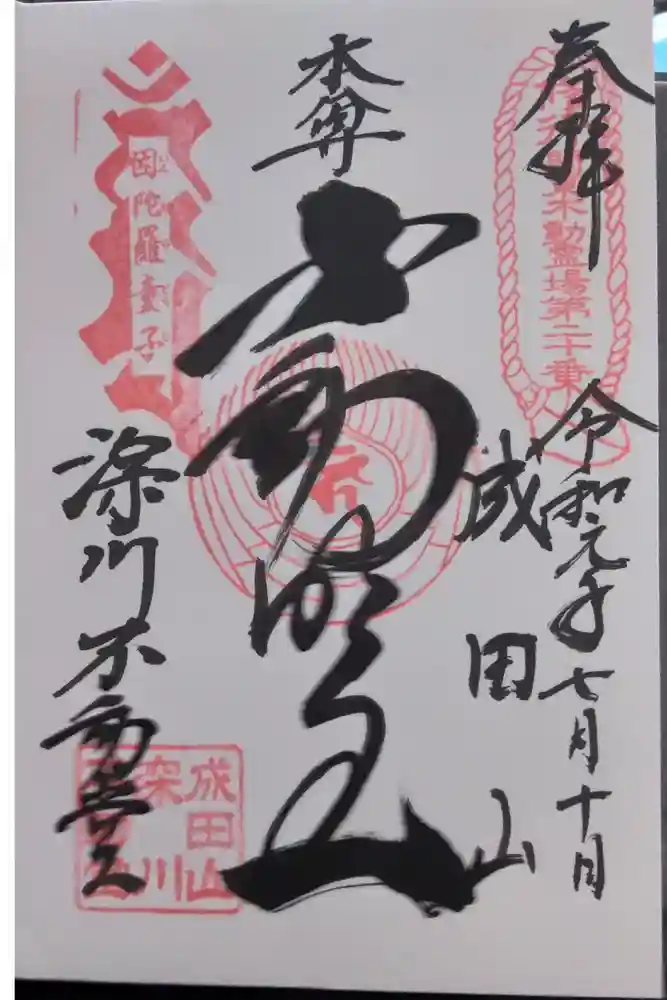 奉拝
令和元年七月十日
不動霊場第二十番
成田山
本尊
不動明王
因陀羅童子
深川不動堂
成田山
深川